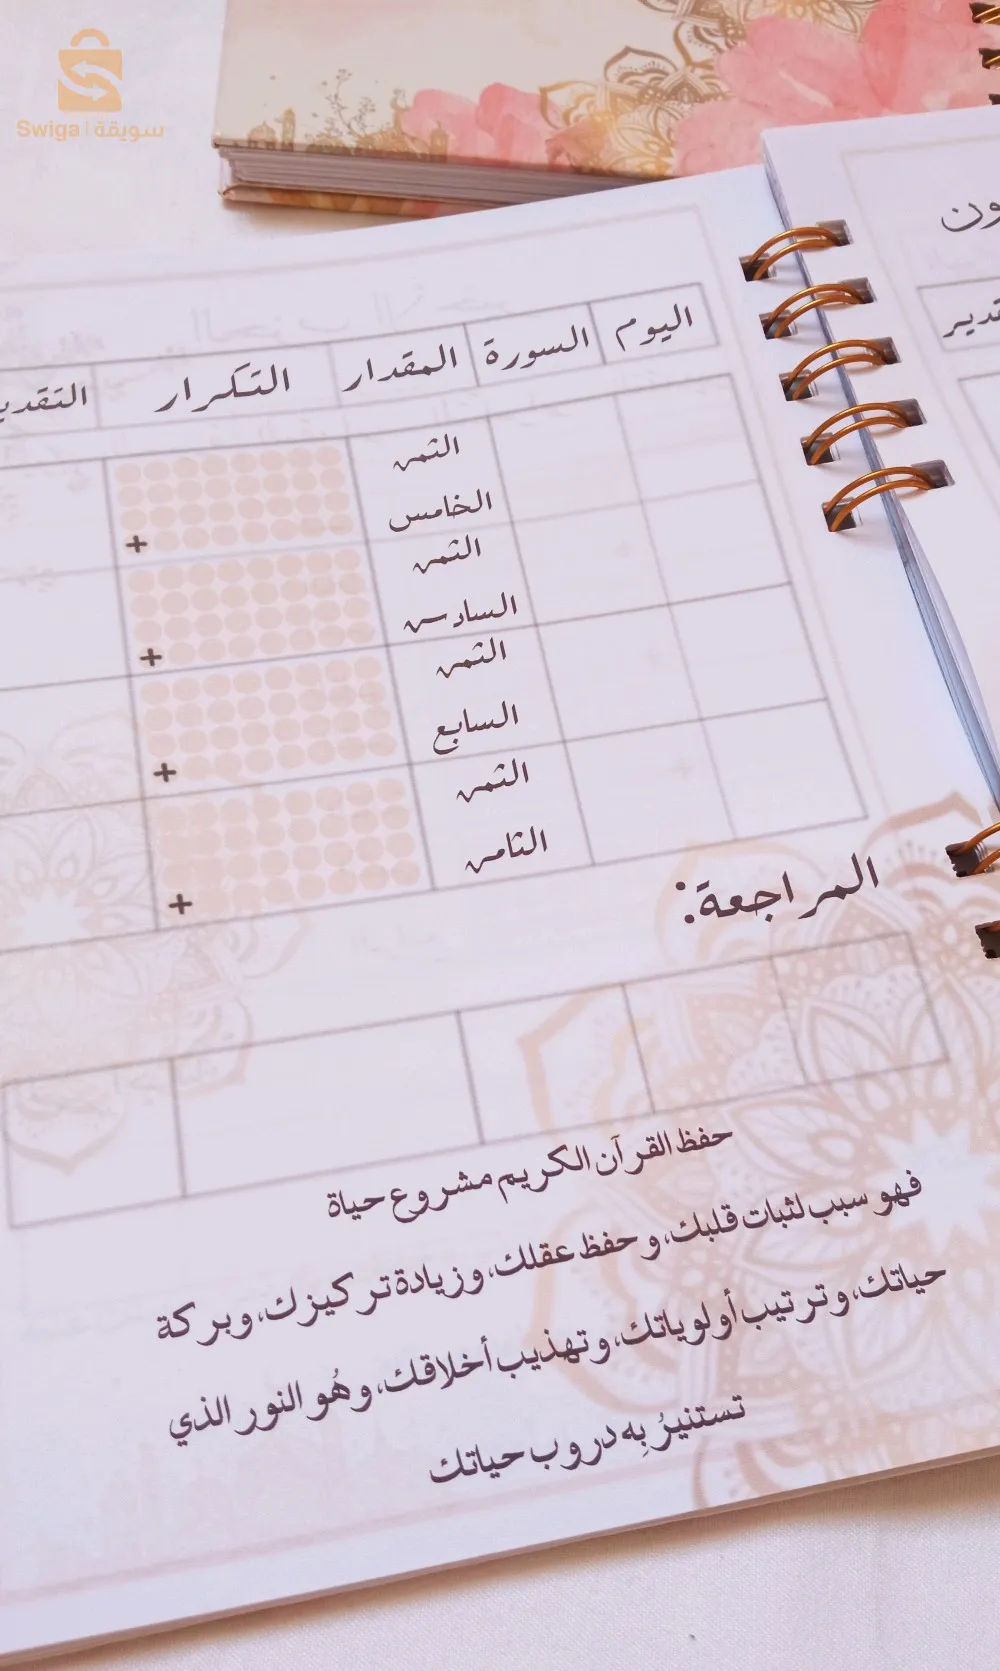 Swiga | سويقة
ون
قدير
اليوم السورة المقدار التكرار التقدي
الثمن
الخامس
+
الثمن
السادس
+
الثمن
السابع
+
الثمن
الثامن
+
المراجعة:
حفظ القرآن الكريم مشروع حياة
فهو سبب لثبات قلبك، وحفظ عقلك، وزيادة تركيزك، وبركة
حياتك، وترتيب أولوياتك، وتهذيب أخلاقك، وهُو النور الذي
تستنيرُ بِه دروب حياتك